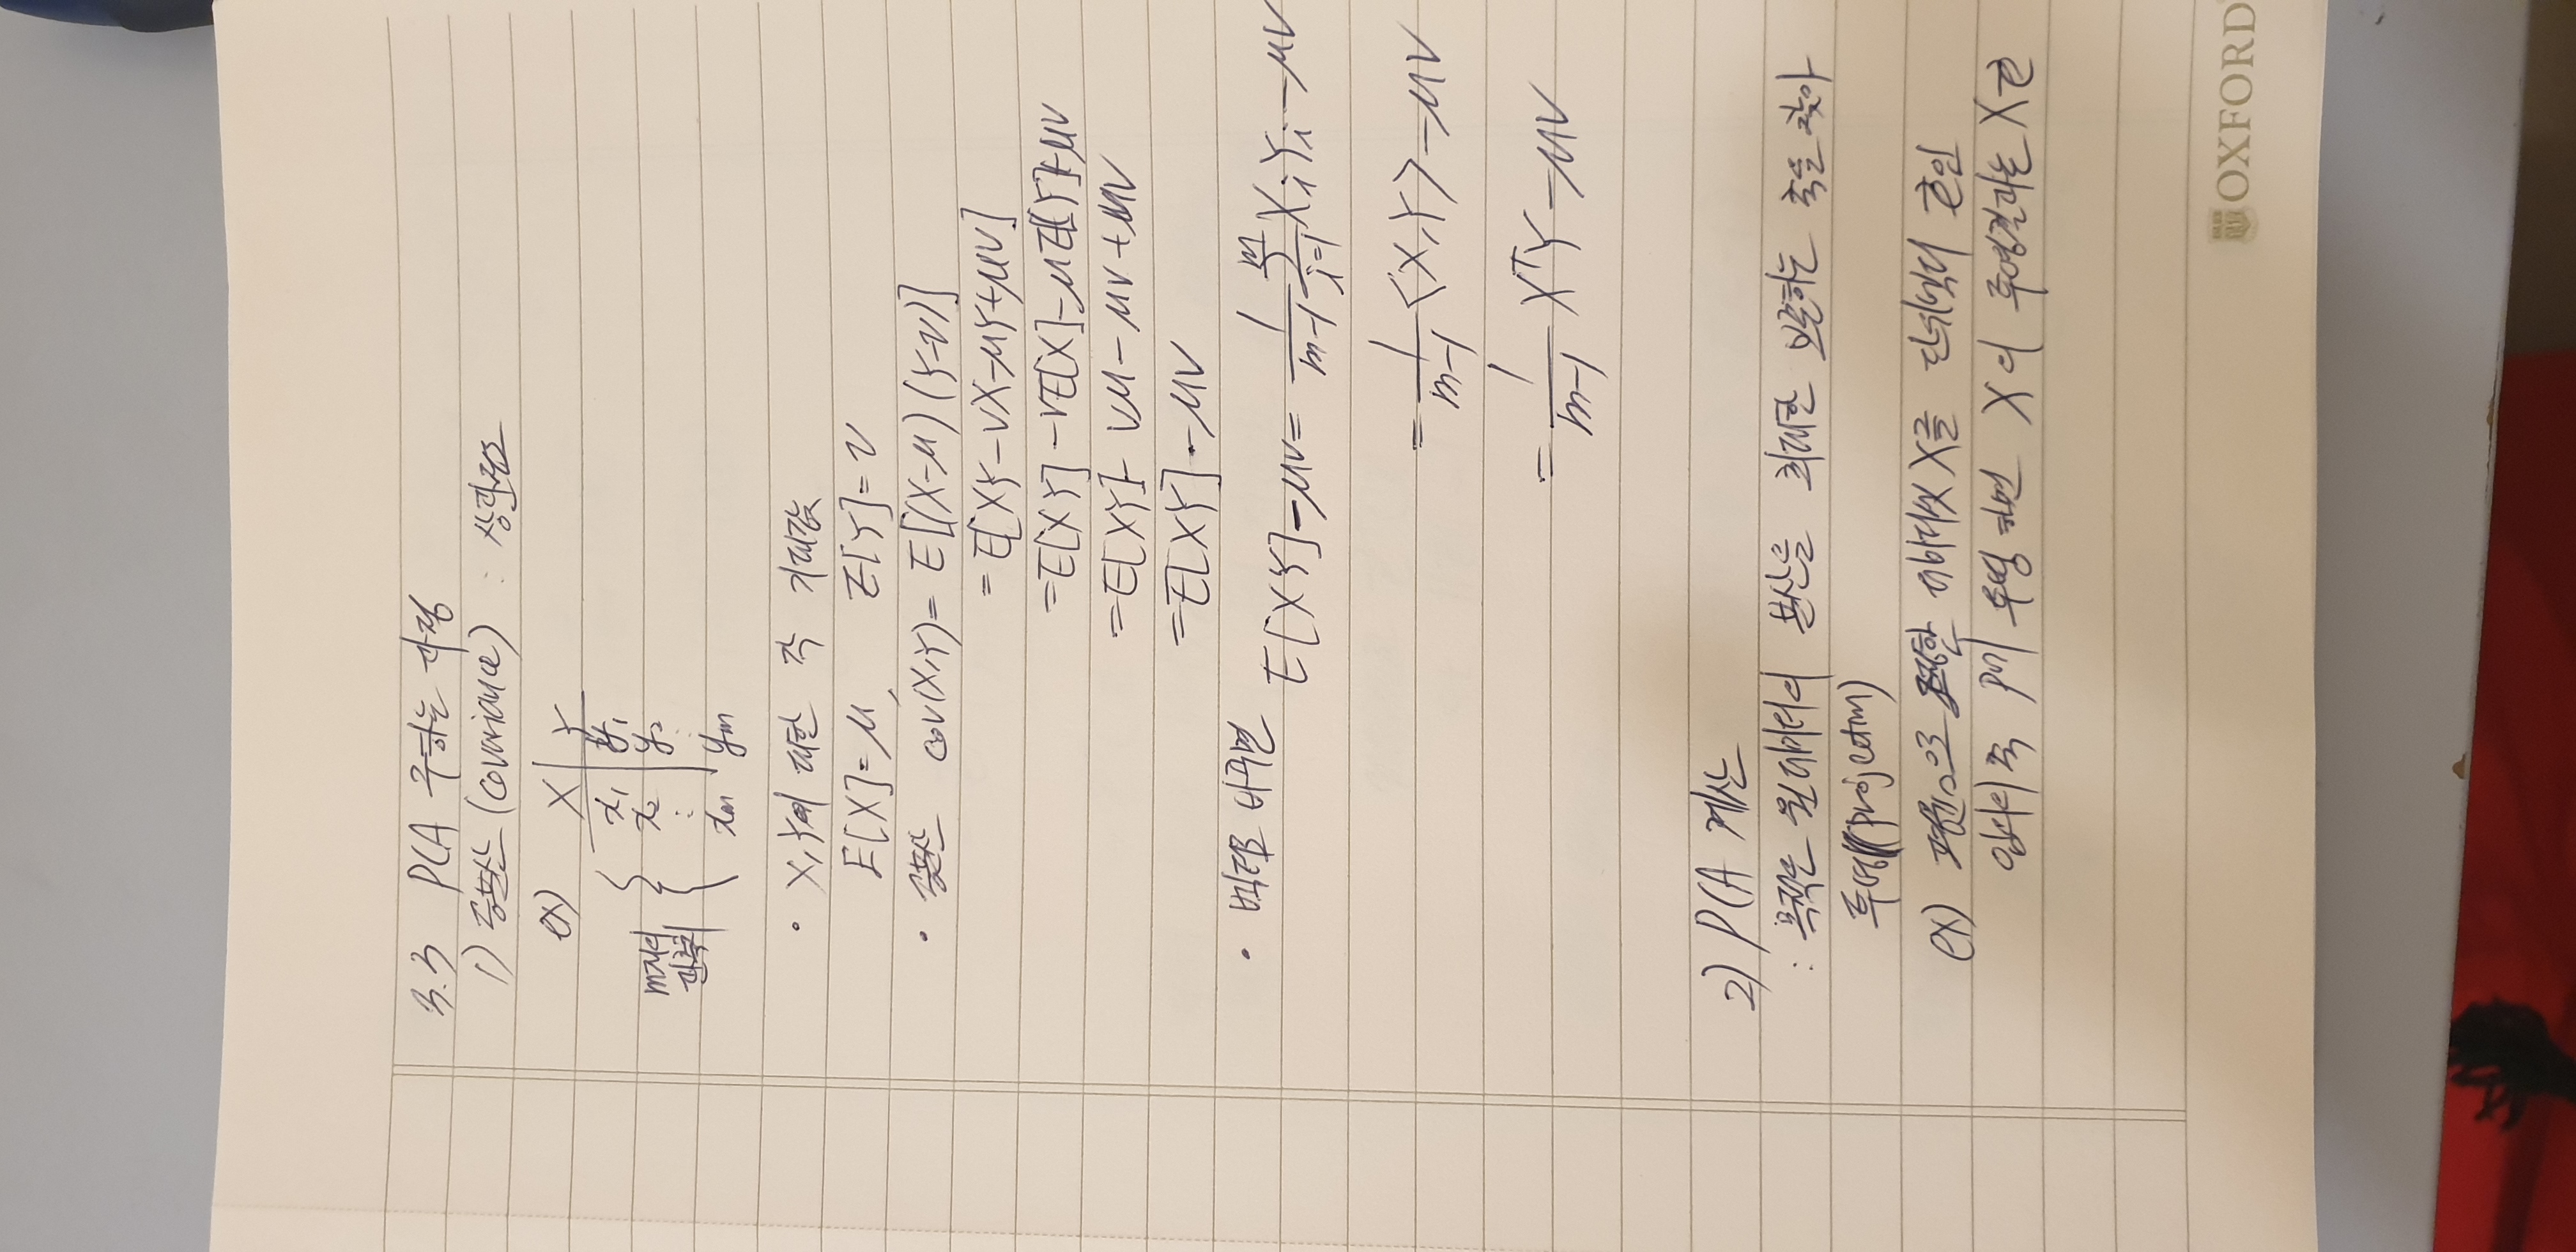 3.3 PCA 구하는 과정
1) 공분산 (covariance) : 상관정도
ex) X | Y
x₁ | y₁
x₂ | y₂
m개의 관측치
⋮ | ⋮
xm | ym
• X, Y에 대한 각 기대값
E[X]=μ, E[Y]=ν
• 공분산 cov(X,Y)= E[(X-μ)(Y-ν)]
= E[XY-νX-μY+μν]
= E[XY]-νE[X]-μE[Y]+μν
= E[XY]-νμ-μν+μν
= E[XY]-μν
• 벡터로 바꾸면 E[XY]-μν= 1/(m-1) Σ_{i=1}^{m} XᵢYᵢ-μν
= 1/(m-1) <X,Y>-μν
= 1/(m-1) XᵀY-μν
2) PCA 계산
: 목적은 원 데이터의 분산을 최대한 보존하는 축을 찾아
투영(projection)
ex) 평균 0으로 조정한 데이터셋 X를 단위벡터 e⃗인
임의의 축 P에 투영하면 X의 투영결과는 Xe⃗
OXFORD